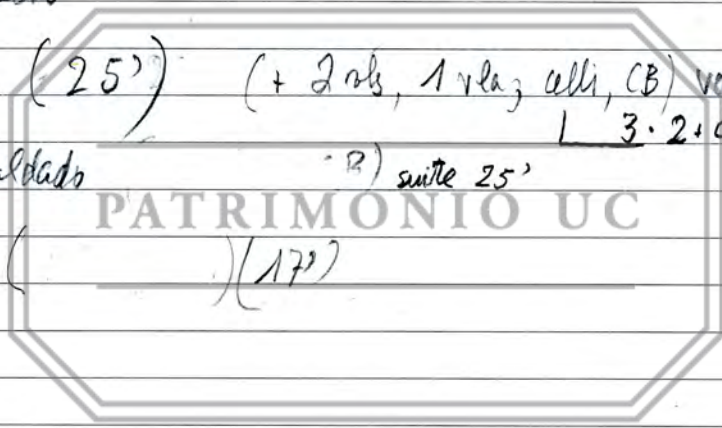 (25') (+ 2 vls, 1 vla, celli, CB)
3 · 2 +
ldado 2) suite 25'
PATRIMONIO UC
( ) (17')